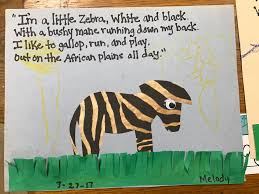 "I'm a little Zebra, White and black.
With a bushy mane running down my back.
I like to gallop, run, and play.
Out on the African plains all day."
7-27-17
Melody